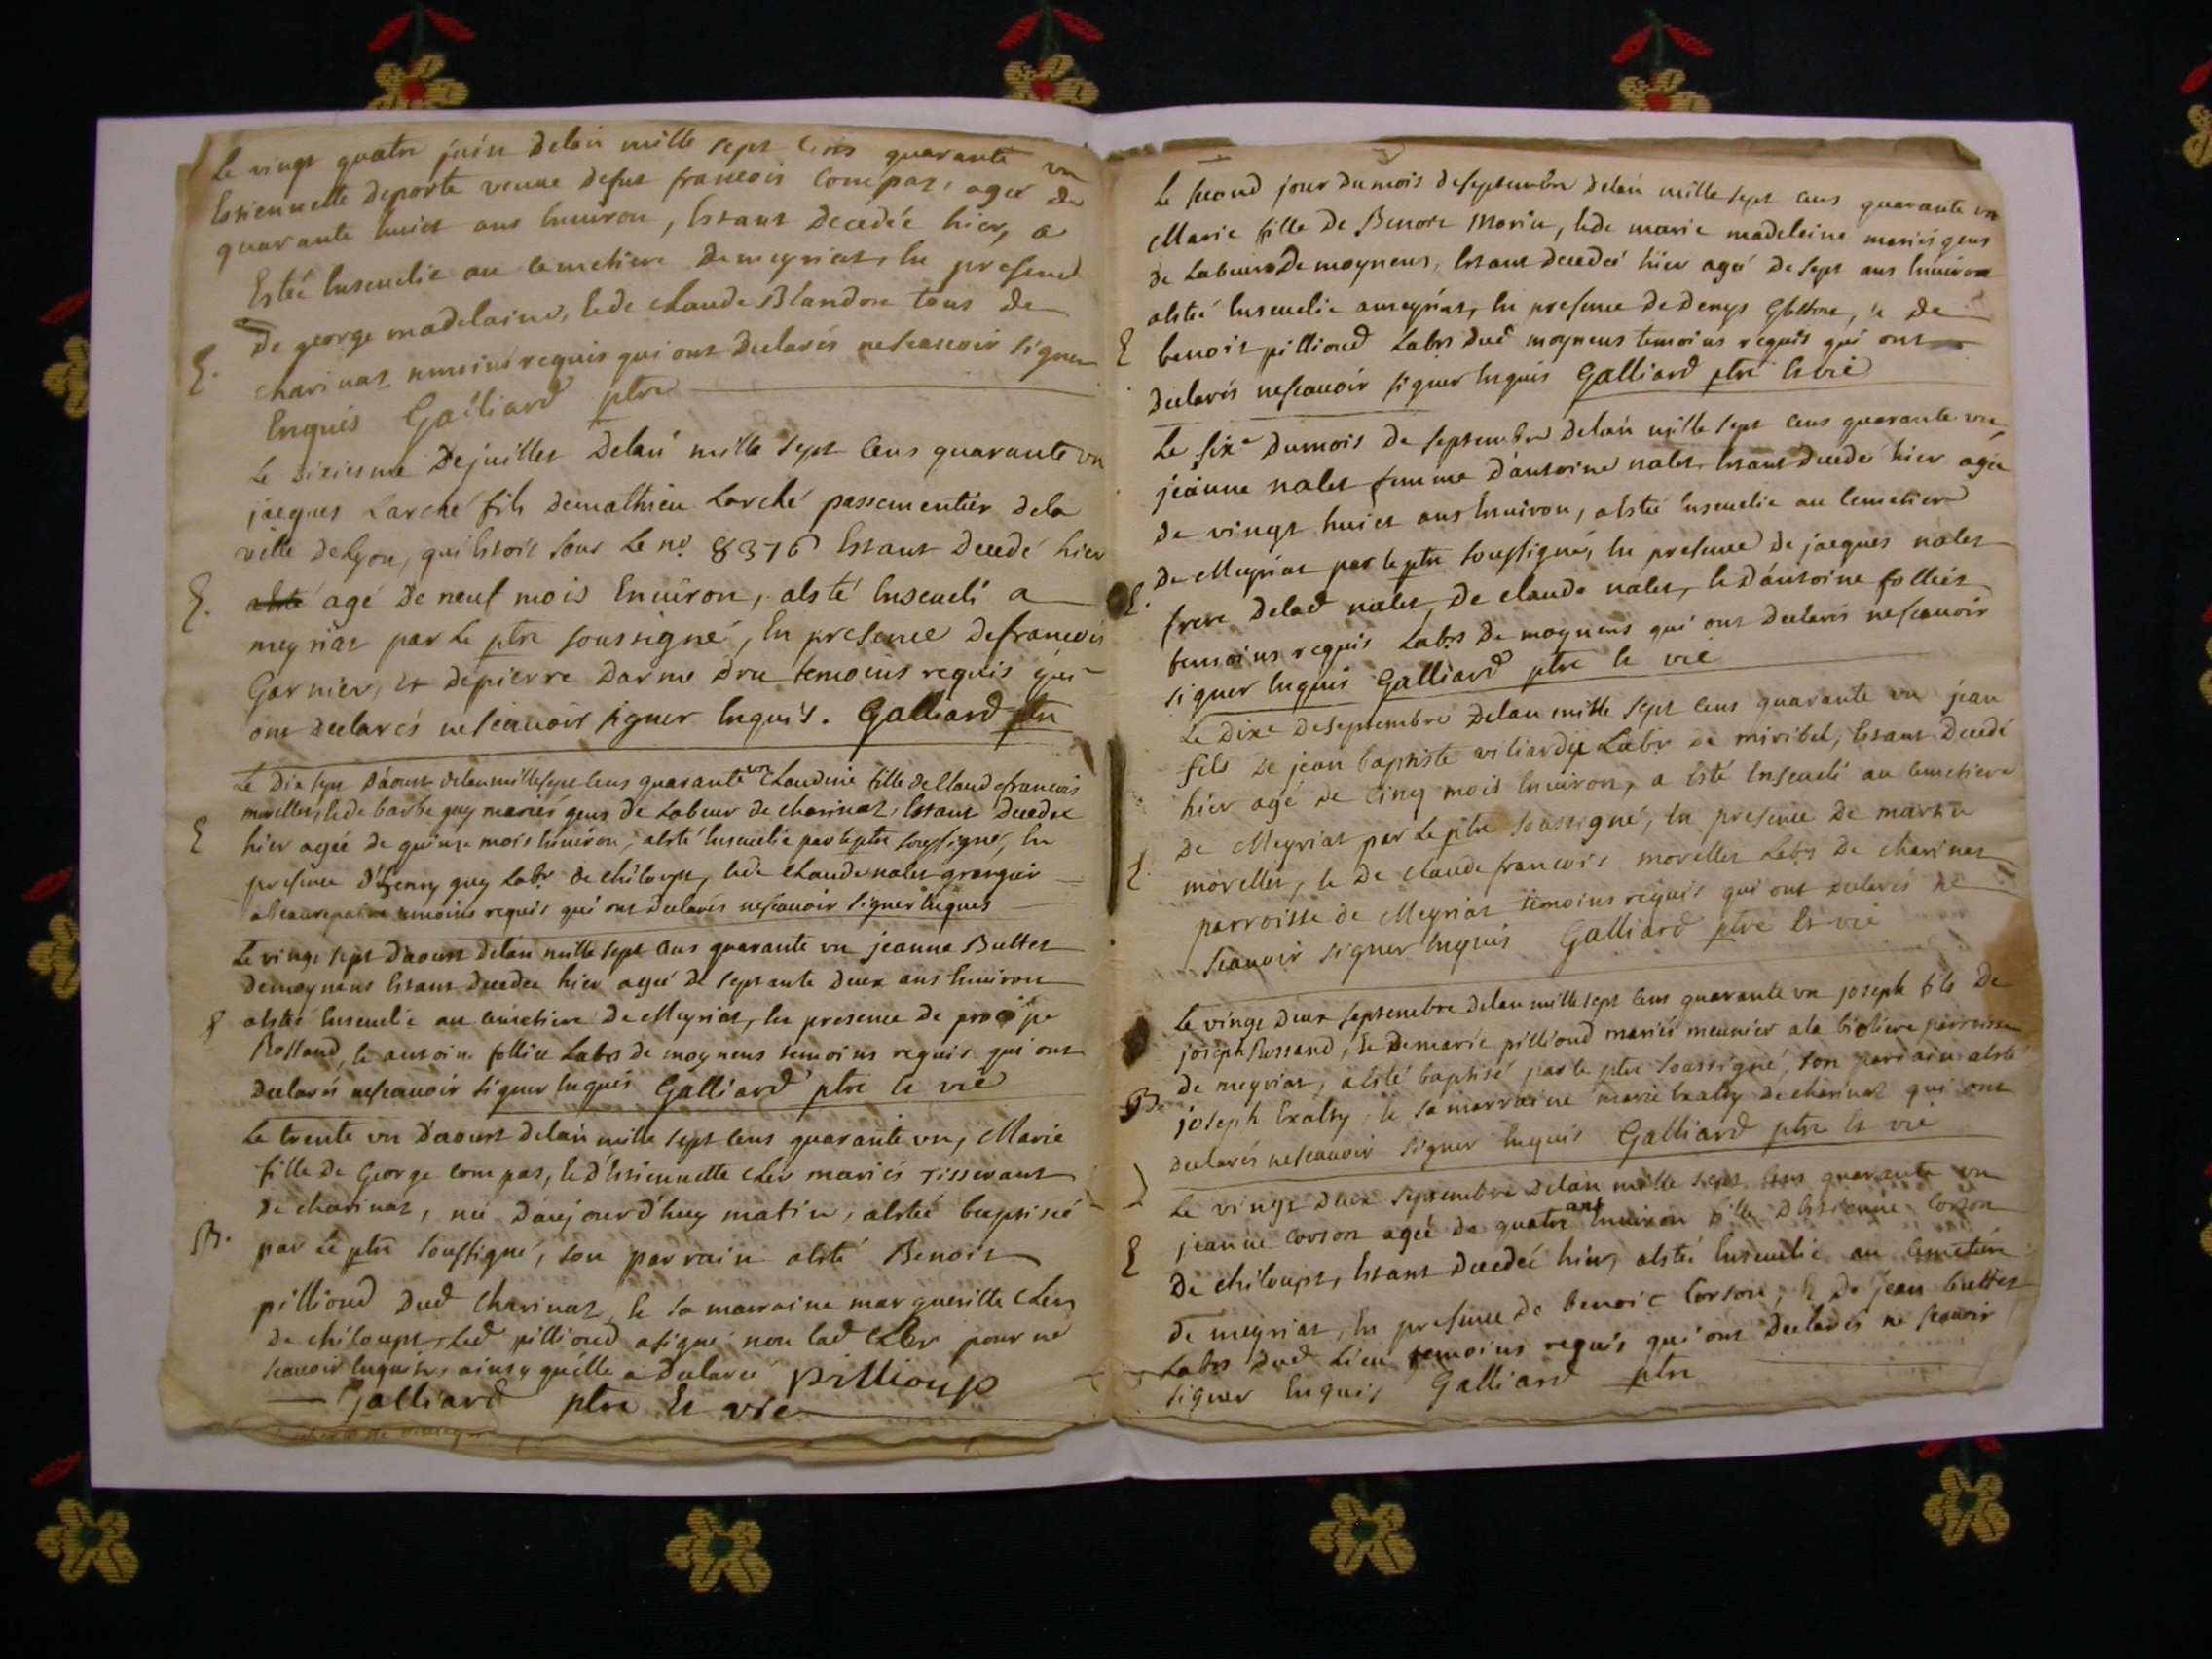 Le vingt quatre juin delan mille sept cens quarante un
Estiennette deporte venue defut francois Compas, agee de
quarante huict ans Environ, Estant Decedée hier, a
Estée Ensevelie au Cemetiere Demeyriat, En presence
De george madelaine, & de claude Blandon tous de
E. charinas temoins requis qui ont Declarés nescavoir signer
Enquis Galliard ptre
Le sixiesme Dejuillet Delan mille sept Cens quarante un
jacques Larché fils demathieu Larché passementier dela
ville deLyon, qui Estoit sous Le no. 8376 Estant Decedé hier
E. agé De neuf mois Environ, a esté Enseveli a
meyriat par Le ptre soussigné, En presence defrancois
Garnier, et depierre Darme dru temoins requis qui
ont declarés nescavoir signer Enquis. Galliard ptre
Le Dix sept Daoust delan mille sept Cens quarante un Claudine fille de Claude francois
morellet, & de barbe guy mariés gens de Labeur de charinat, Estant Decedée
E hier agée de quinze mois Environ, a esté Ensevelie par le ptre soussigné, En
presence d'henry guy Labr. de chiloup, & de Claude nalet grangier
a beaurepaire temoins requis qui ont declarés nescavoir signer Enquis
Le vingt sept Daoust delan mille sept Cens quarante un jeanne Buttet
Demoynens Estant decedée hier agée de septante deux ans Environ
E a estée Ensevelie au cemetiere De Meyriat, En presence de
Rossand, & antoine folliet Labrs de moynens temoins requis qui ont
declarés nescavoir signer Enquis Galliard ptre & vic
Le trente un d'aoust delan mille sept Cens quarante un, Marie
fille de George Compas, & d'Estiennette Cler mariés Tisserant
de charinat, née Daujourd'huy matin, a estée baptisée
B. par Le ptre soussigné, son parrain a esté Benoit
pilliond dud Charinat, & sa marraine margueritte Cler
de chiloup, Led pilliond a signé non lad Cler pour ne
scavoir Enquise, ainsy qu'elle a Declaré pillioup
Galliard ptre & vic
Le second jour dumois deseptembre delan mille sept Cens quarante un
Marie fille De Benoit Morin, & de marie madeleine mariés gens
de Labeurs De moynens, Estant decedée hier agée de sept ans Environ
a estée Ensevelie a meyriat, En presence de Denys, & De
E benoit pilliond Labrs dud moynens temoins requis qui ont
declarés nescavoir signer Enquis Galliard ptre & vic
Le sixe dumois de septembre delan mille sept Cens quarante un
jeanne nalet femme d'antoine nalet Estant decedée hier agée
de vingt huict ans Environ, a estée Ensevelie au Cemetiere
De Meyriat par le ptre soussigné, En presence de jacques nalet
E. frere delad nalet, De claude nalet, & D'antoine folliet
temoins requis Labrs De moynens qui ont declarés nescavoir
signer Enquis Galliard ptre & vic
Le Dixe deseptembre delan mille sept Cens quarante un jean
fils de jean baptiste viliardy Labr de miribel, Estant Decedé
hier agé de cinq mois Environ, a Esté Enseveli au Cemetiere
de Meyriat par Le ptre soussigné, En presence de martin
E. morellet, & De claude francois morellet Labrs de charinat
parroisse de Meyriat temoins requis qui ont declarés ne
scavoir signer Enquis Galliard ptre & vic
Le vingt deux septembre delan mille sept Cens quarante un joseph fils De
joseph Rossand, & De marie pilliond mariés meunier a la parroisse
de meyriat, a esté baptisé par le ptre soussigné, son parrain a esté
B. joseph, & sa marraine marie de charinat qui ont
declarés nescavoir signer Enquis Galliard ptre & vic
Le vingt deux septembre delan mille sept Cens quarante un
jeanne Corson agée de quatre ans Environ fille D'Estienne Corson
E De chiloup, Estant decedée hier, a estée Ensevelie au Cemetiere
De meyriat, En presence de benoit Corson, & De jean buttet
Labrs dud Lieu temoins requis qui ont declarés ne scavoir
signer Enquis Galliard ptre